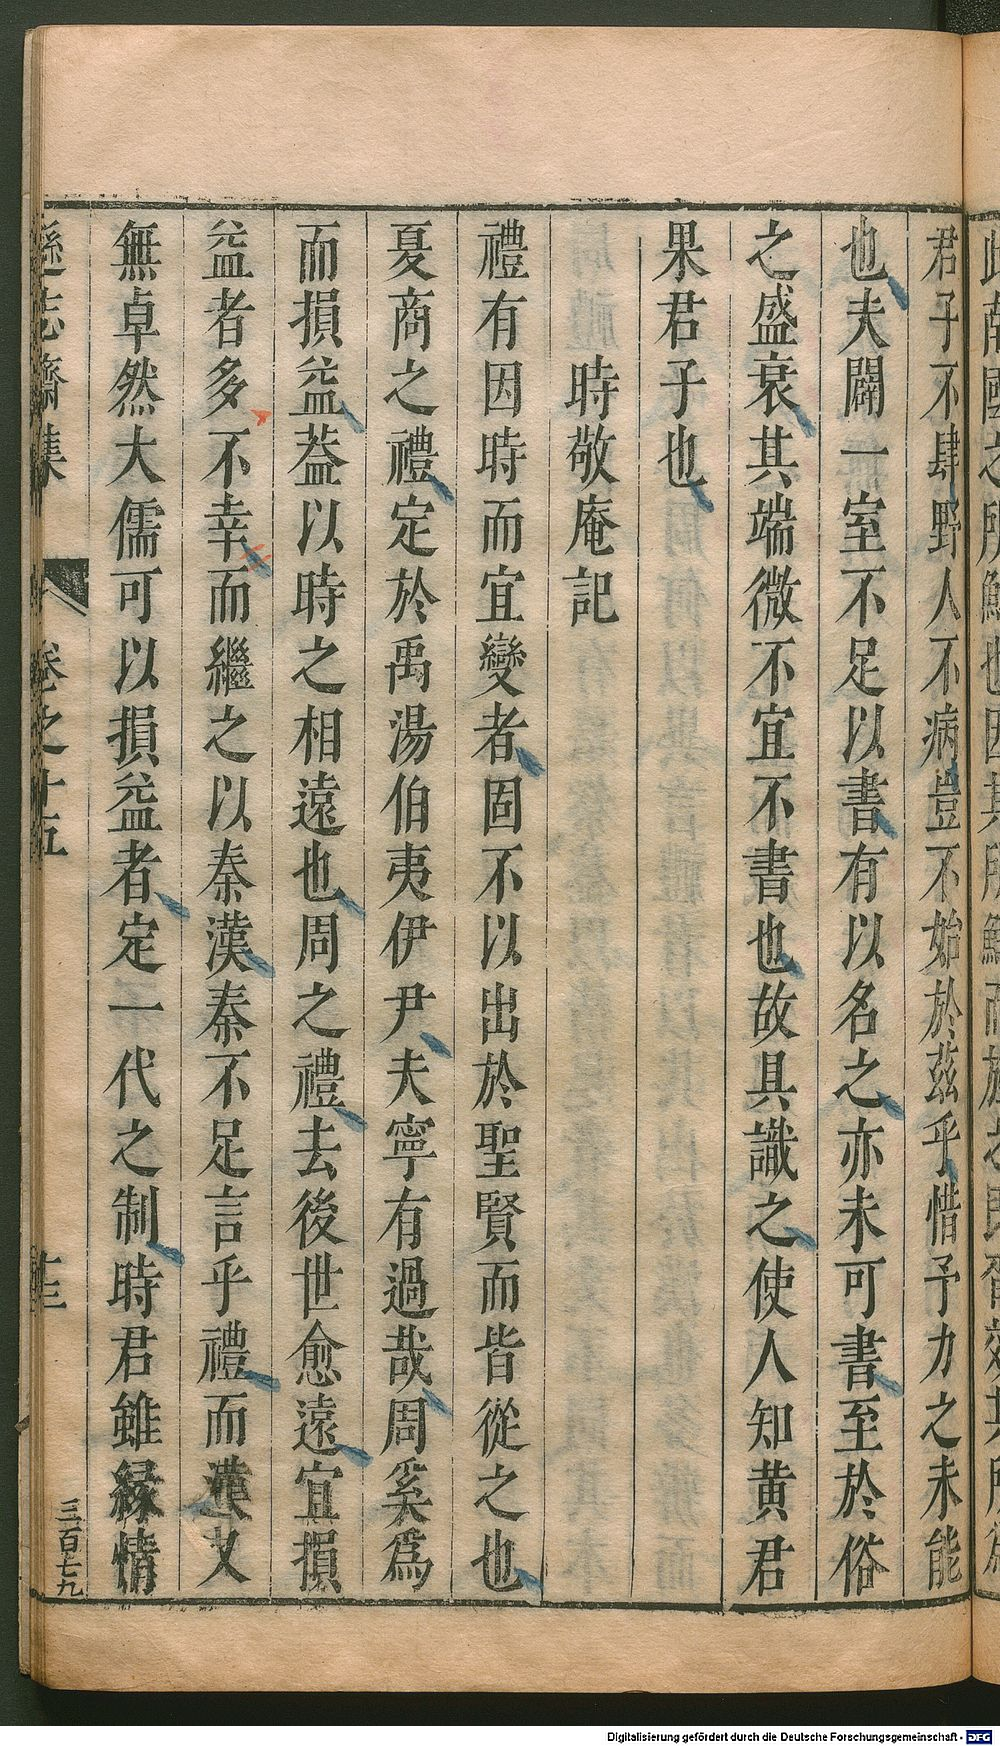 君子不肆野人不病豈不始於茲乎惜予力之未能
也夫闢一室不足以書有以名之亦未可書至於俗
之盛衰其端微不宜不書也故具識之使人知黄君
果君子也
時敬庵記
禮有因時而宜變者固不以出於聖賢而皆從之也
夏商之禮定於禹湯伯夷伊尹夫寧有過哉周奚爲
而損益葢以時之相遠也周之禮去後世愈遠宜損
益者多不幸而繼之以秦漢秦不足言乎禮而漢又
無卓然大儒可以損益者定一代之制時君雖緣情
遜志齋集
卷之十五
三百七九
Digitalisierung gefördert durch die Deutsche Forschungsgemeinschaft - DFG